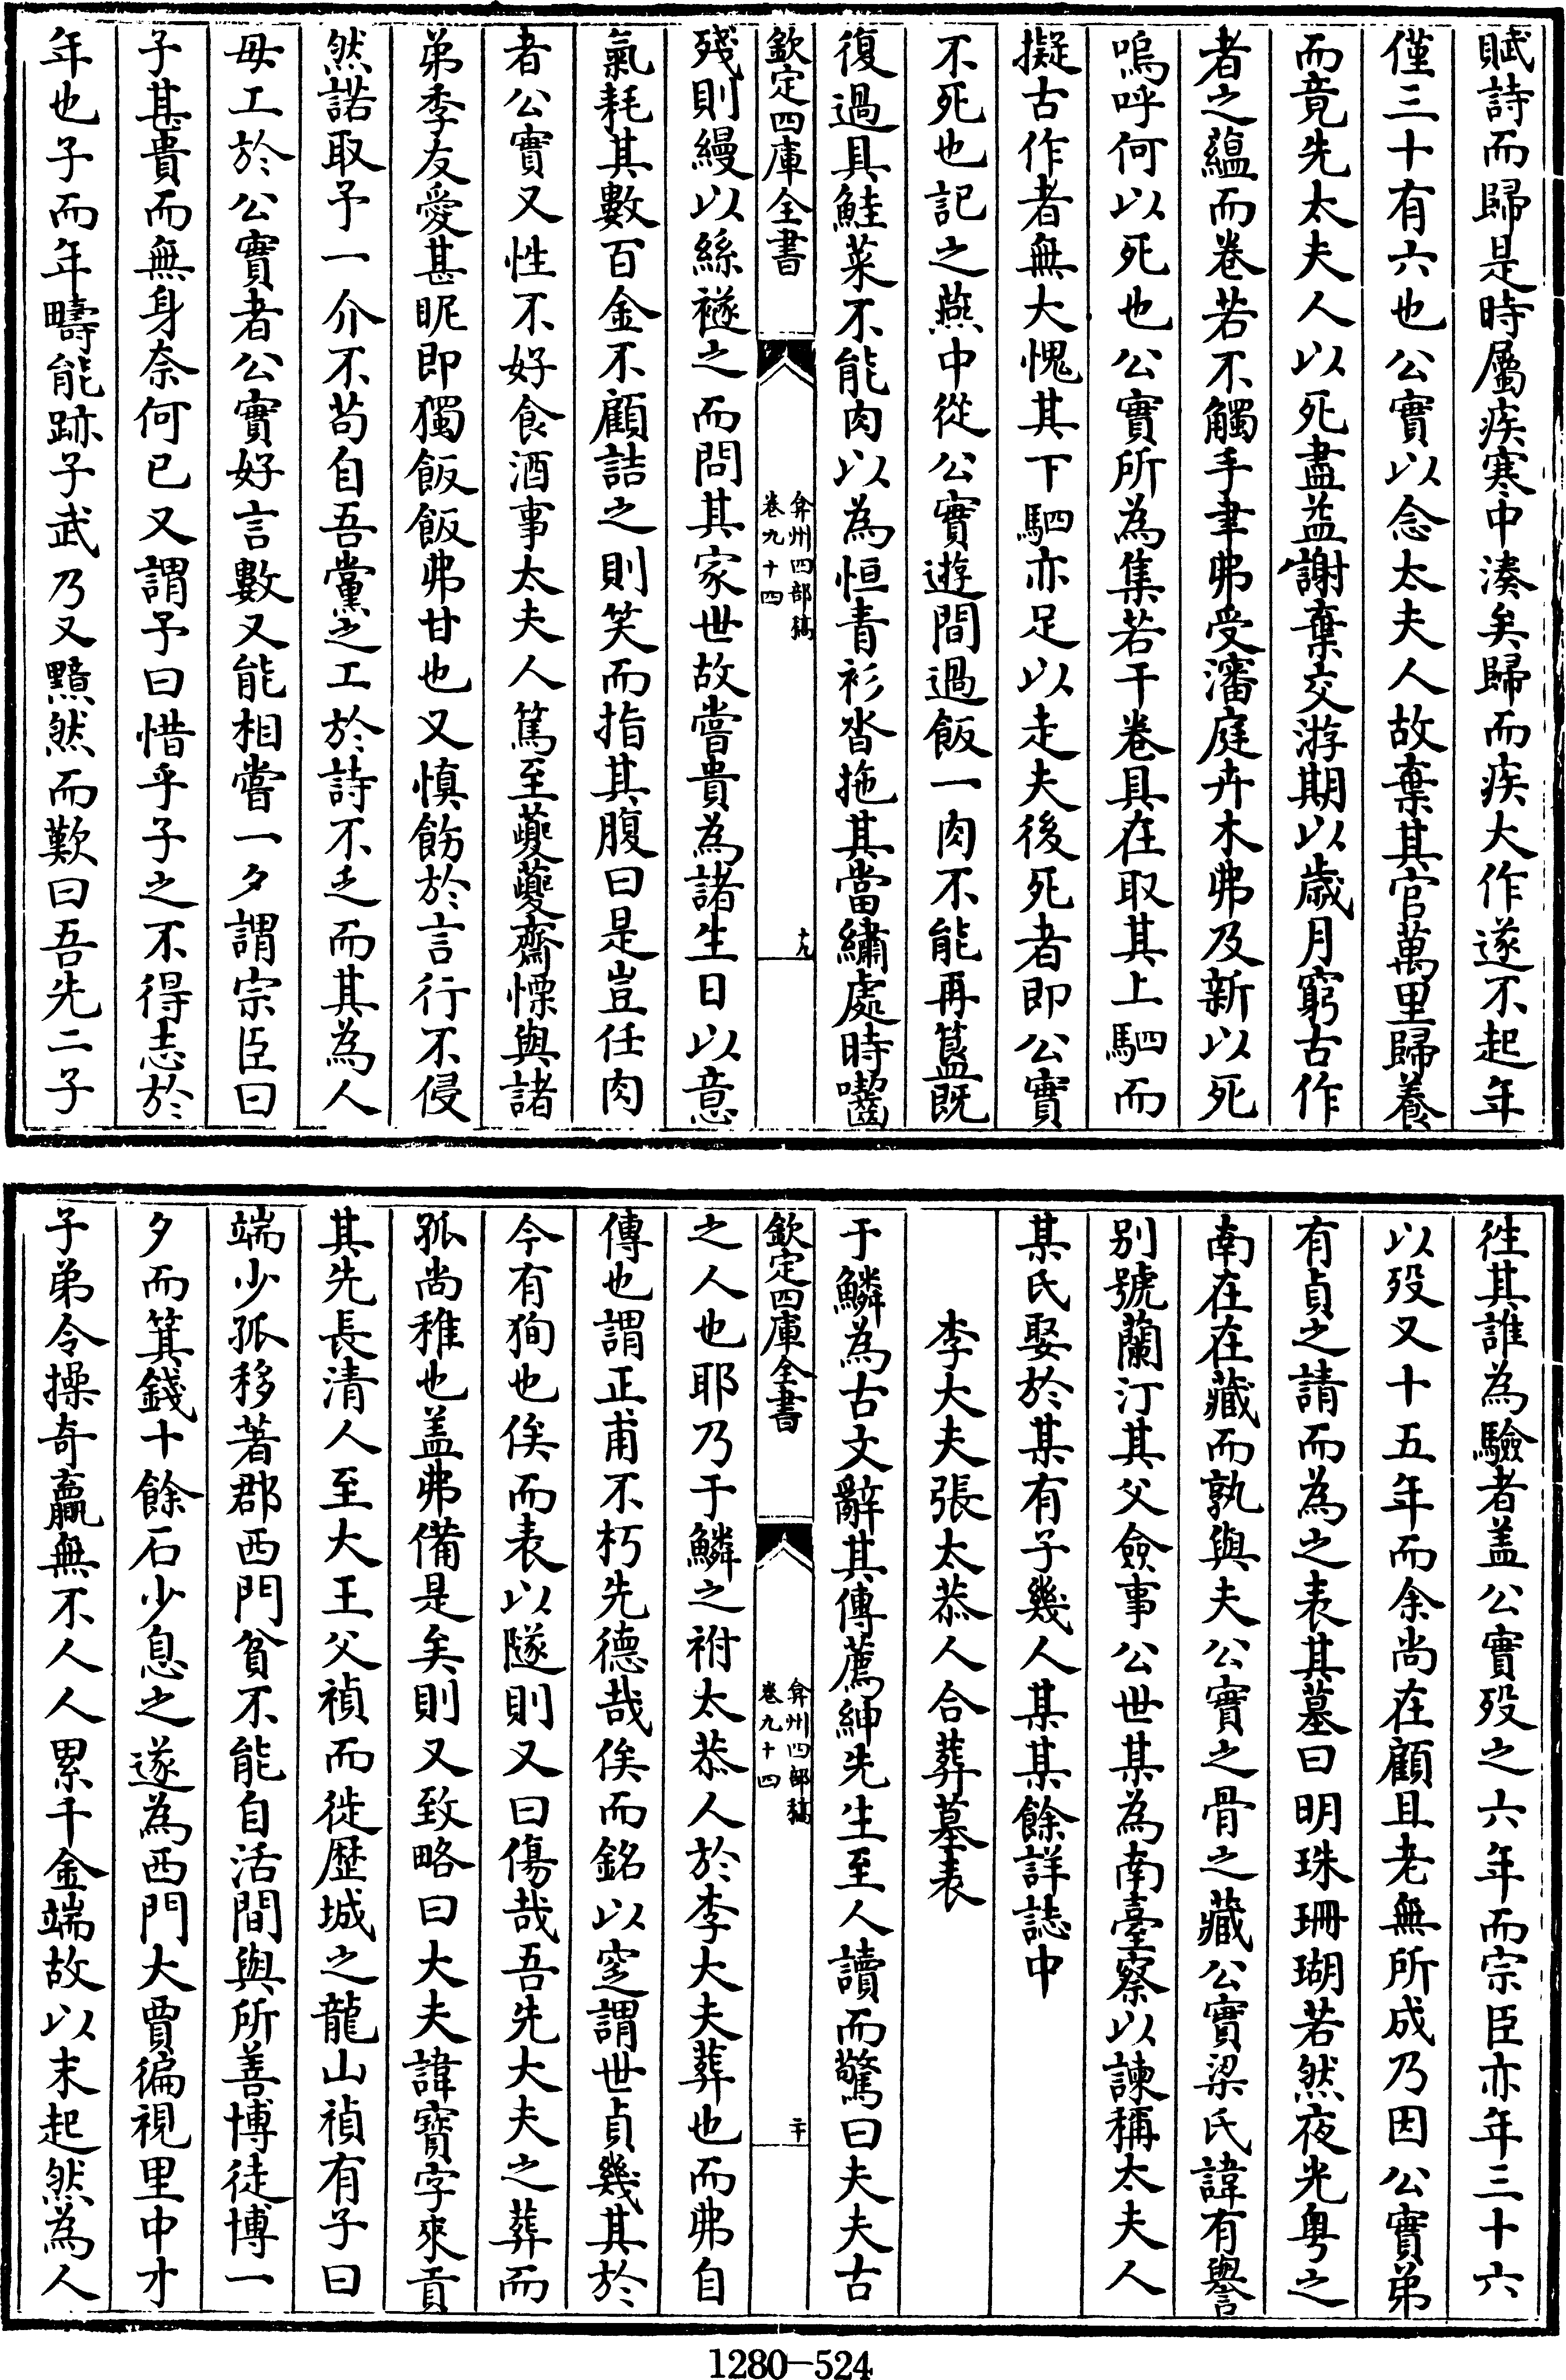 賦詩而歸是時屬疾寒中湊矣歸而疾大作遂不起年
僅三十有六也公實以念太夫人故棄其官萬里歸養
而竟先太夫人以死盡益謝棄交游期以歲月窮古作
者之蘊而卷若不觸手聿弗受瀋庭卉木弗及新以死
嗚呼何以死也公實所為集若干卷具在取其上駟而
擬古作者無大愧其下駟亦足以走夫後死者即公實
不死也記之燕中從公實遊間過飯一肉不能再簋既
復過具鮭菜不能肉以為恒青衫沓拖其當繡處時囓
欽定四庫全書
弇州四部稿
卷九十四
十九
殘則縵以絲襚之而問其家世故嘗貴為諸生日以意
氣耗其數百金不顧詰之則笑而指其腹曰是豈任肉
者公實又性不好食酒事太夫人篤至夔夔齋慄與諸
弟季友愛甚昵即獨飯飯弗甘也又慎飭於言行不侵
然諾取予一介不苟自吾黨之工於詩不乏而其為人
毋工於公實者公實好言數又能相嘗一夕謂宗臣曰
子甚貴而無身奈何已又謂予曰惜乎子之不得志於
年也子而年疇能跡子武乃又黯然而歎曰吾先二子
徃其誰為驗者盖公實歿之六年而宗臣亦年三十六
以歿又十五年而余尚在顧且老無所成乃因公實弟
有貞之請而為之表其墓曰明珠珊瑚若然夜光粤之
南在在藏而孰與夫公實之骨之藏公實梁氏諱有譽
别號蘭汀其父僉事公世某為南臺察以諫稱太夫人
某氏娶於某有子幾人某某餘詳誌中
李大夫張太恭人合葬墓表
于鱗為古文辭其傳薦紳先生至人讀而驚曰夫夫古
欽定四庫全書
弇州四部稿
卷九十四
二十
之人也耶乃于鱗之祔太恭人於李大夫葬也而弗自
傳也謂正甫不朽先德哉俟而銘以窆謂世貞幾其於
今有狥也俟而表以隧則又曰傷哉吾先大夫之葬而
孤尚稚也盖弗備是矣則又致略曰大夫諱寶字來貢
其先長清人至大王父禎而徙歷城之龍山禎有子曰
端少孤移著郡西門貧不能自活間與所善博徒博一
夕而箕錢十餘石少息之遂為西門大賈徧視里中才
子弟令操奇贏無不人人累千金端故以末起然為人
1280—524